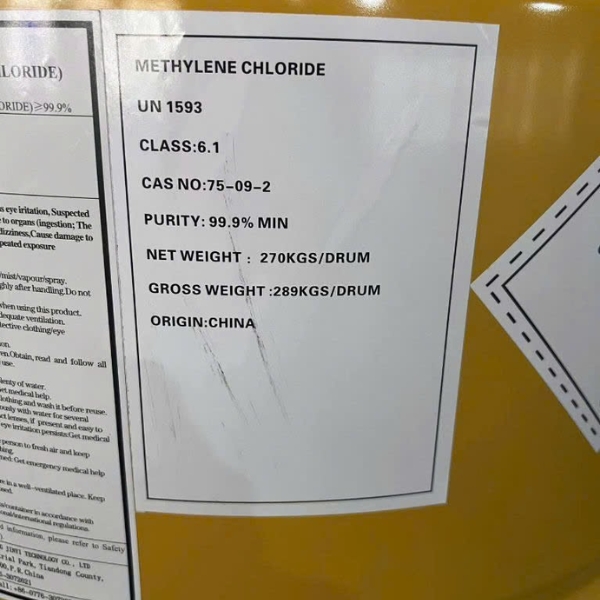 LORIDE)
ORIDE)≥99.9%
s eye iritation, Suspected
to organs (ingestion; The
dizziness,Cause damage to
peated exposure
/mist/vapour/spray.
ghly after handling.Do not
when using this product.
dequate ventilation.
tective clothing/eye
on.
en.Obtain, read and follow all
use.
lenty of water.
et medical help.
lothing and wash it before reuse.
ously with water for several
ct lenses, if present and easy to
eye irritation persists:Get medical
person to fresh air and keep
hing.
ned: Get emergency medical help
re in a well-ventilated place. Keep
sed.
s/container in accordance with
onal/international regulations.
d information, please refer to Safety
TECHNOLOGY CO., LTD
rial Park, Tiandong County,
00,P.R.China
METHYLENE CHLORIDE
UN 1593
CLASS:6.1
CAS NO:75-09-2
PURITY: 99.9% MIN
NET WEIGHT : 270KGS/DRUM
GROSS WEIGHT :289KGS/DRUM
ORIGIN:CHINA